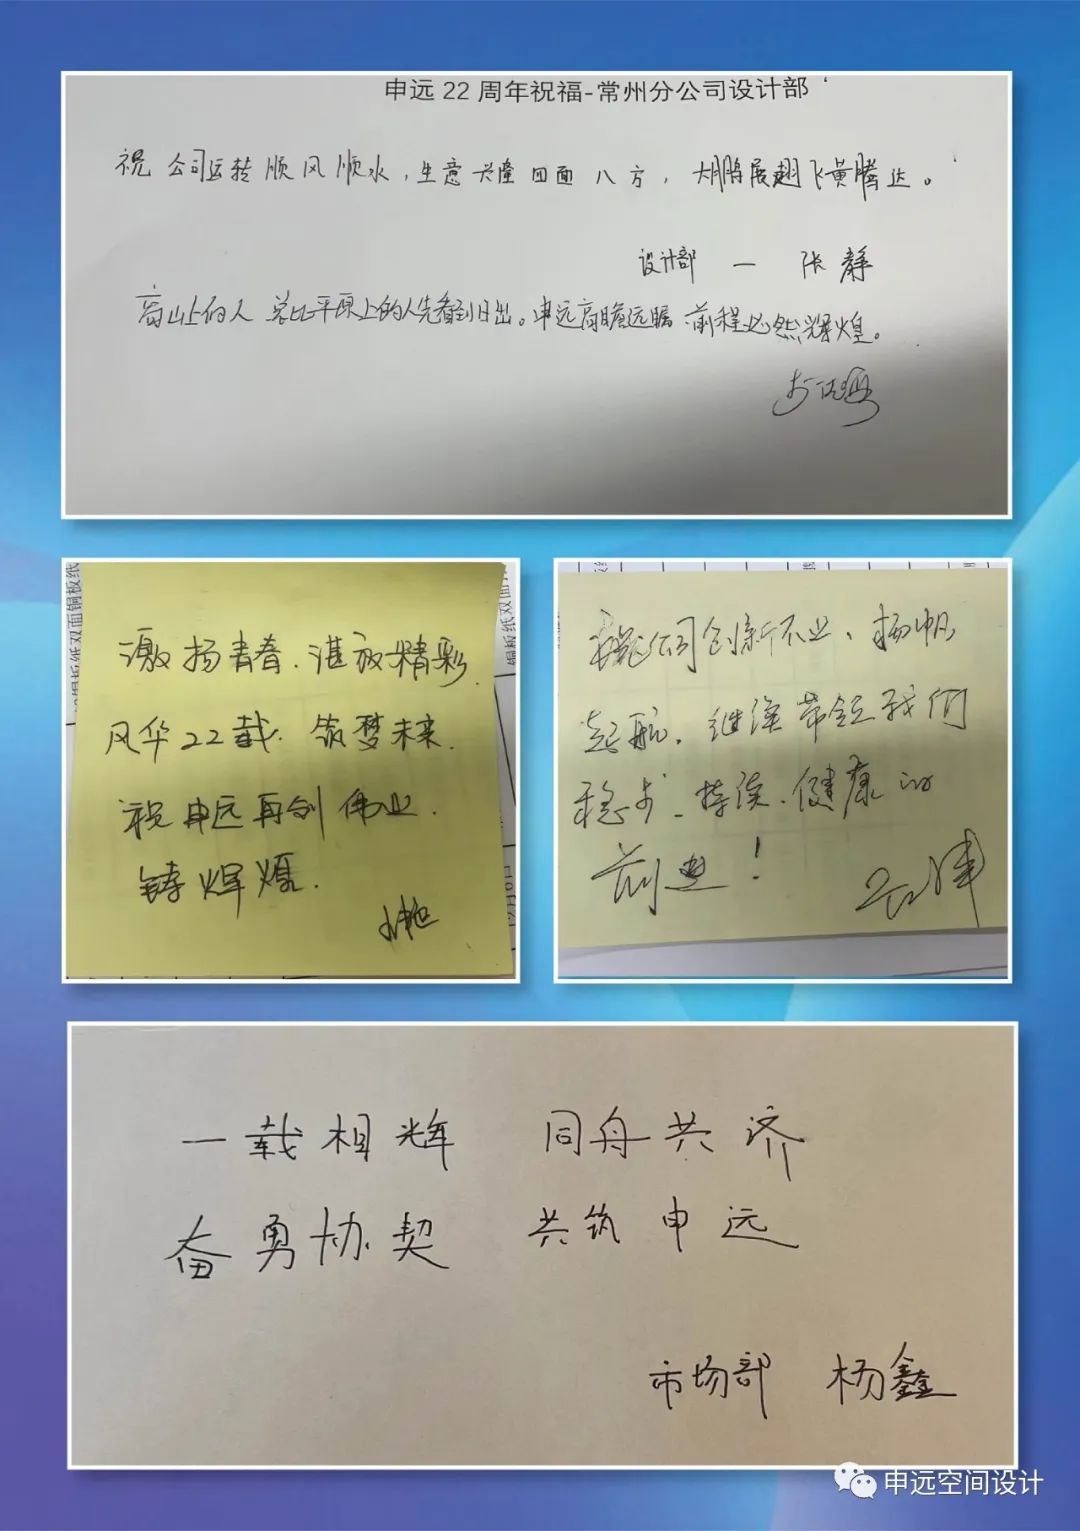 申远22周年祝福-常州分公司设计部
祝公司运转顺风顺水,生意兴隆四面八方,大鹏展翅飞黄腾达。
设计部 — 张静
高山上的人总比平原上的人先看到日出。申远高瞻远瞩前程必然辉煌。
激扬青春.湛放精彩.
风华22载.筑梦未来.
祝申远再创伟业.
铸辉煌.
公司创新不止、扬帆
起航,继续带领我们
稳步、持续、健康的
前进!
一载相辉 同舟共济
奋勇协契 共筑申远
市场部 杨鑫
申远空间设计